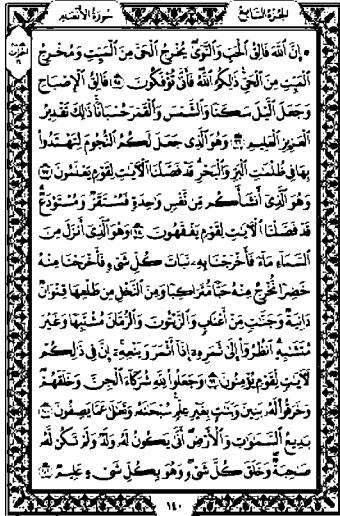 الجزء السابع
سورة الأنعام
إن الله فالق الحب والنوى يخرج الحي من الميت ومخرج
الميت من الحي ذلكم الله فأنى تؤفكون ٩٥ فالق الإصباح
وجعل الليل سكنا والشمس والقمر حسبانا ذلك تقدير
العزيز العليم ٩٦ وهو الذي جعل لكم النجوم لتهتدوا
بها في ظلمت البر والبحر قد فصلنا الآيت لقوم يعلمون ٩٧
وهو الذي أنشأكم من نفس وحدة فمستقر ومستودع
قد فصلنا الآيت لقوم يفقهون ٩٨ وهو الذي أنزل من
السماء ماء فأخرجنا به نبات كل شيء فأخرجنا منه
خضرا نخرج منه حبا متراكبا ومن النخل من طلعها قنوان
دانية وجنت من أعناب والزيتون والرمان مشتبها وغير
متشبه انظروا إلى ثمره إذا أثمر وينعه إن في ذلكم
لآيت لقوم يؤمنون ٩٩ وجعلوا لله شركاء الجن وخلقهم
وخرقوا له بنين وبنت بغير علم سبحنه وتعلى عما يصفون ١٠٠
بديع السموت والأرض أنى يكون له ولد ولم تكن له
صحبة وخلق كل شيء وهو بكل شيء عليم ١٠١
١٤٠